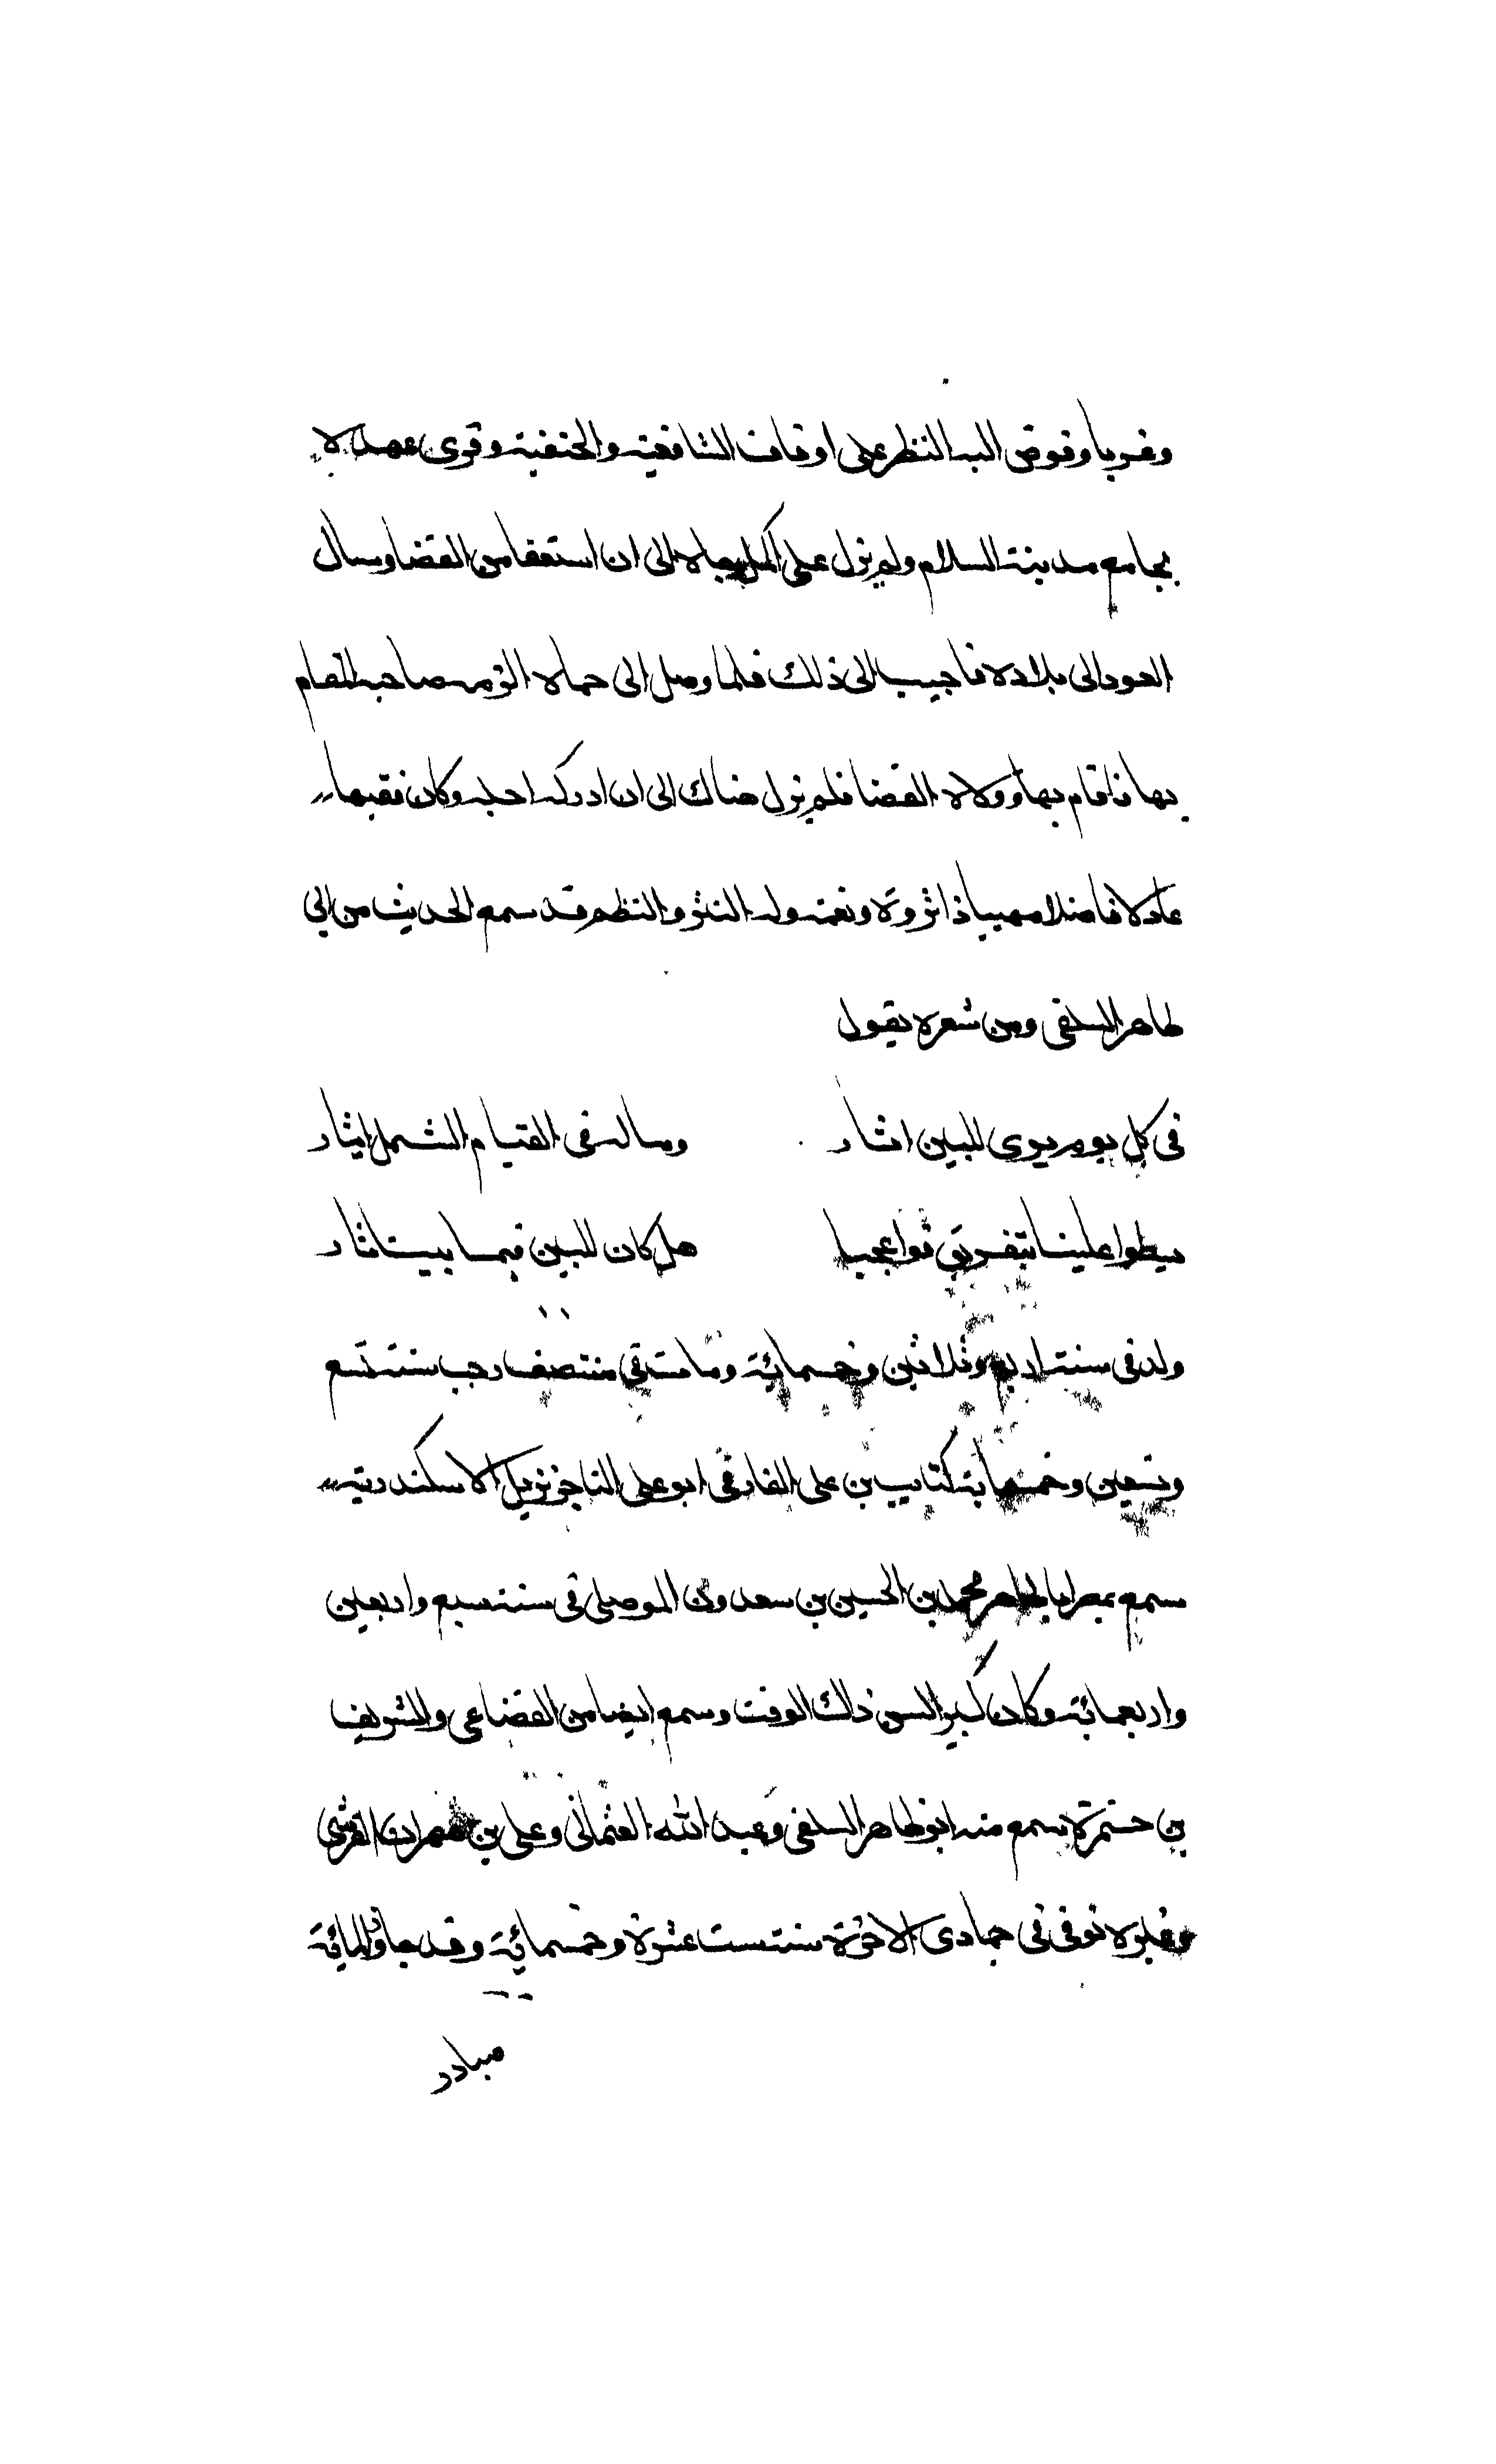 وغربا وفوض اليه النظر على اوقاف الشافعية والحنفية وقرى عهده
بجامع مدينة السلام ولم يزل على اكمل جاه الى ان استعفا من القضا وسال
العود الى بلاده فاجيب الى ذلك فلما وصل الى حماه الزمه صاحب المقام
بها فاقام بها وولاه القضا فلم يزل هناك الى ان ادركه اجله وكان فقيها
عادلا فاضلا مهيبا ذا ثروة ونعمة وله النثر والنظم قد سمع الحديث من ابي
طاهر السلفى ومن شعره يقول
فى كل يوم يرى للبين اثار وماله فى القيام الشمل ايثار
يسطوا علينا بتفريق فوا عجبا هل كان للبين فيما بيننا ثار
ولد فى سنة اربع وثلاثين وخمسمائة ومات فى منتصف رجب سنة تسع
وتسعين وخمسمائة كتايب بن على الفارقى ابو على التاجر نزيل الاسكندرية
سمع بمصر ابا طاهر محمد بن الحسين بن سعدون الموصلى فى سنة سبع واربعين
واربعمائة وكان كبير السن ذلك الوقت وسمع ايضا من القضاعى والشريف
بن حمزة سمع منه ابو طاهر السلفى وعبد الله العثمانى وعلى بن مهران القرشى
وغيره توفى فى جمادى الاخرة سنة ست عشرة وخمسمائة وقد جاوز المائة
مبادر